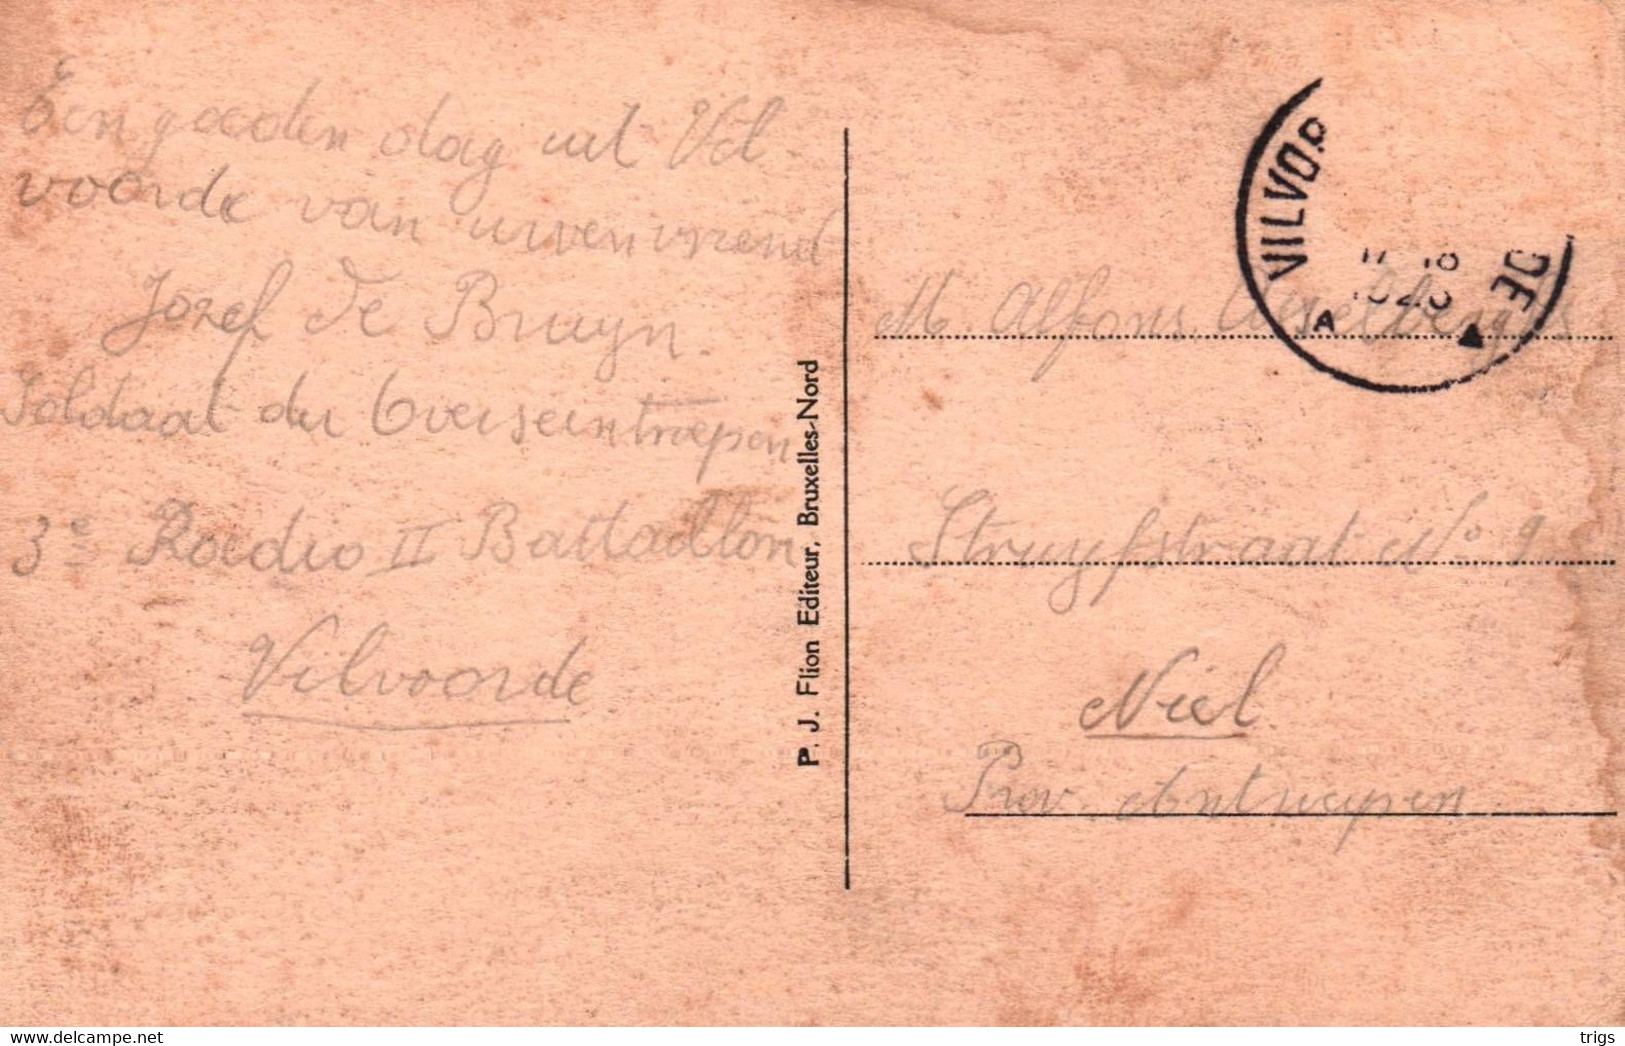 Een goeden dag uit Vil
voorde van uwen vriend
Jozef De Bruyn.
Soldaat der Overseintroepen
3e Radio II Battaillon
Vilvoorde
P. J. Flion Editeur, Bruxelles-Nord
VILVOR DE
A
M. Alfons
Struyfstraat No 9
Niel
Prov. Antwerpen
www.delcampe.net
trigs